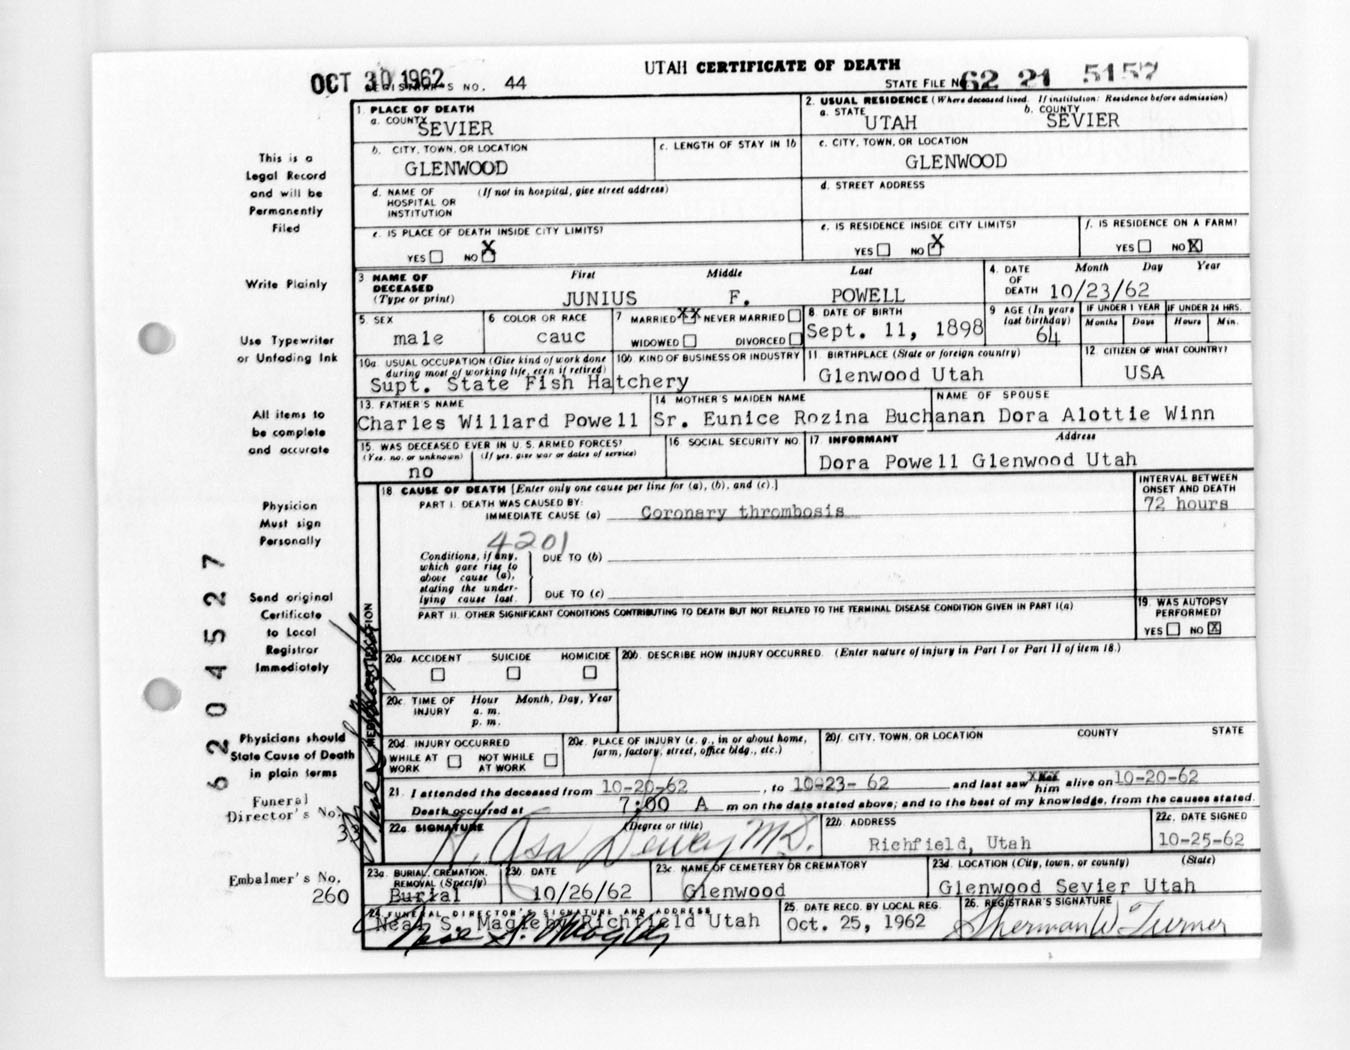 UTAH CERTIFICATE OF DEATH
OCT 30 1962 REGISTRAR'S NO. 44
STATE FILE NO. 62 21 5157
1 PLACE OF DEATH
a. COUNTY SEVIER
2. USUAL RESIDENCE (Where deceased lived. If institution: Residence before admission)
a. STATE UTAH b. COUNTY SEVIER
b. CITY, TOWN, OR LOCATION GLENWOOD
c. LENGTH OF STAY IN 1b
c. CITY, TOWN, OR LOCATION GLENWOOD
d. NAME OF HOSPITAL OR INSTITUTION (If not in hospital, give street address)
d. STREET ADDRESS
e. IS PLACE OF DEATH INSIDE CITY LIMITS?
YES NO X
e. IS RESIDENCE INSIDE CITY LIMITS?
YES NO X
f. IS RESIDENCE ON A FARM?
YES NO X
3 NAME OF DECEASED (Type or print)
First Middle Last
JUNIUS F. POWELL
4. DATE OF DEATH Month Day Year
10/23/62
5. SEX male
6 COLOR OR RACE cauc
7 MARRIED XX NEVER MARRIED
WIDOWED DIVORCED
8. DATE OF BIRTH Sept. 11, 1898
9 AGE (In years last birthday) 64
IF UNDER 1 YEAR Months Days
IF UNDER 24 HRS. Hours Min.
10a. USUAL OCCUPATION (Give kind of work done during most of working life, even if retired)
10b. KIND OF BUSINESS OR INDUSTRY
Supt. State Fish Hatchery
11 BIRTHPLACE (State or foreign country)
Glenwood Utah
12 CITIZEN OF WHAT COUNTRY?
USA
13. FATHER'S NAME
Charles Willard Powell
14 MOTHER'S MAIDEN NAME
Sr. Eunice Rozina Buchanan
NAME OF SPOUSE
Dora Alottie Winn
15. WAS DECEASED EVER IN U. S. ARMED FORCES?
(Yes, no. or unknown) (If yes, give war or dates of service)
no
16 SOCIAL SECURITY NO.
17. INFORMANT Address
Dora Powell Glenwood Utah
18 CAUSE OF DEATH [Enter only one cause per line for (a), (b), and (c).]
INTERVAL BETWEEN ONSET AND DEATH
PART I. DEATH WAS CAUSED BY:
IMMEDIATE CAUSE (a) Coronary thrombosis 72 hours
4201
Conditions, if any, which gave rise to above cause (a), stating the underlying cause last.
DUE TO (b)
DUE TO (c)
PART II. OTHER SIGNIFICANT CONDITIONS CONTRIBUTING TO DEATH BUT NOT RELATED TO THE TERMINAL DISEASE CONDITION GIVEN IN PART I(a)
19. WAS AUTOPSY PERFORMED?
YES NO X
20a. ACCIDENT SUICIDE HOMICIDE
20b. DESCRIBE HOW INJURY OCCURRED. (Enter nature of injury in Part I or Part II of item 18.)
20c. TIME OF INJURY Hour Month, Day, Year
a. m.
p. m.
20d. INJURY OCCURRED
WHILE AT WORK NOT WHILE AT WORK
20e. PLACE OF INJURY (e. g., in or about home, farm, factory, street, office bldg., etc.)
20f. CITY, TOWN, OR LOCATION COUNTY STATE
21. I attended the deceased from 10-20-62, to 10-23-62 and last saw him alive on 10-20-62
Death occurred at 7:00 A m on the date stated above; and to the best of my knowledge, from the causes stated.
22a. SIGNATURE (Degree or title)
H. Asa Dewey M.D.
22b. ADDRESS
Richfield, Utah
22c. DATE SIGNED
10-25-62
23a. BURIAL, CREMATION, REMOVAL (Specify)
Burial
23b DATE
10/26/62
23c NAME OF CEMETERY OR CREMATORY
Glenwood
23d. LOCATION (City, town, or county) (State)
Glenwood Sevier Utah
24 FUNERAL DIRECTOR'S SIGNATURE AND ADDRESS
Neal S. Magleby Richfield Utah
Neal S. Magleby
25 DATE RECD. BY LOCAL REG.
Oct. 25, 1962
26. REGISTRAR'S SIGNATURE
Sherman W Turner
MEDICAL CERTIFICATION
Neal S Magleby
This is a
Legal Record
and will be
Permanently
Filed
Write Plainly
Use Typewriter
or Unfading Ink
All items to
be complete
and accurate
Physician
Must sign
Personally
Send original
Certificate
to Local
Registrar
Immediately
Physicians should
State Cause of Death
in plain terms
Funeral
Director's No.
Embalmer's No.
260
62 04527